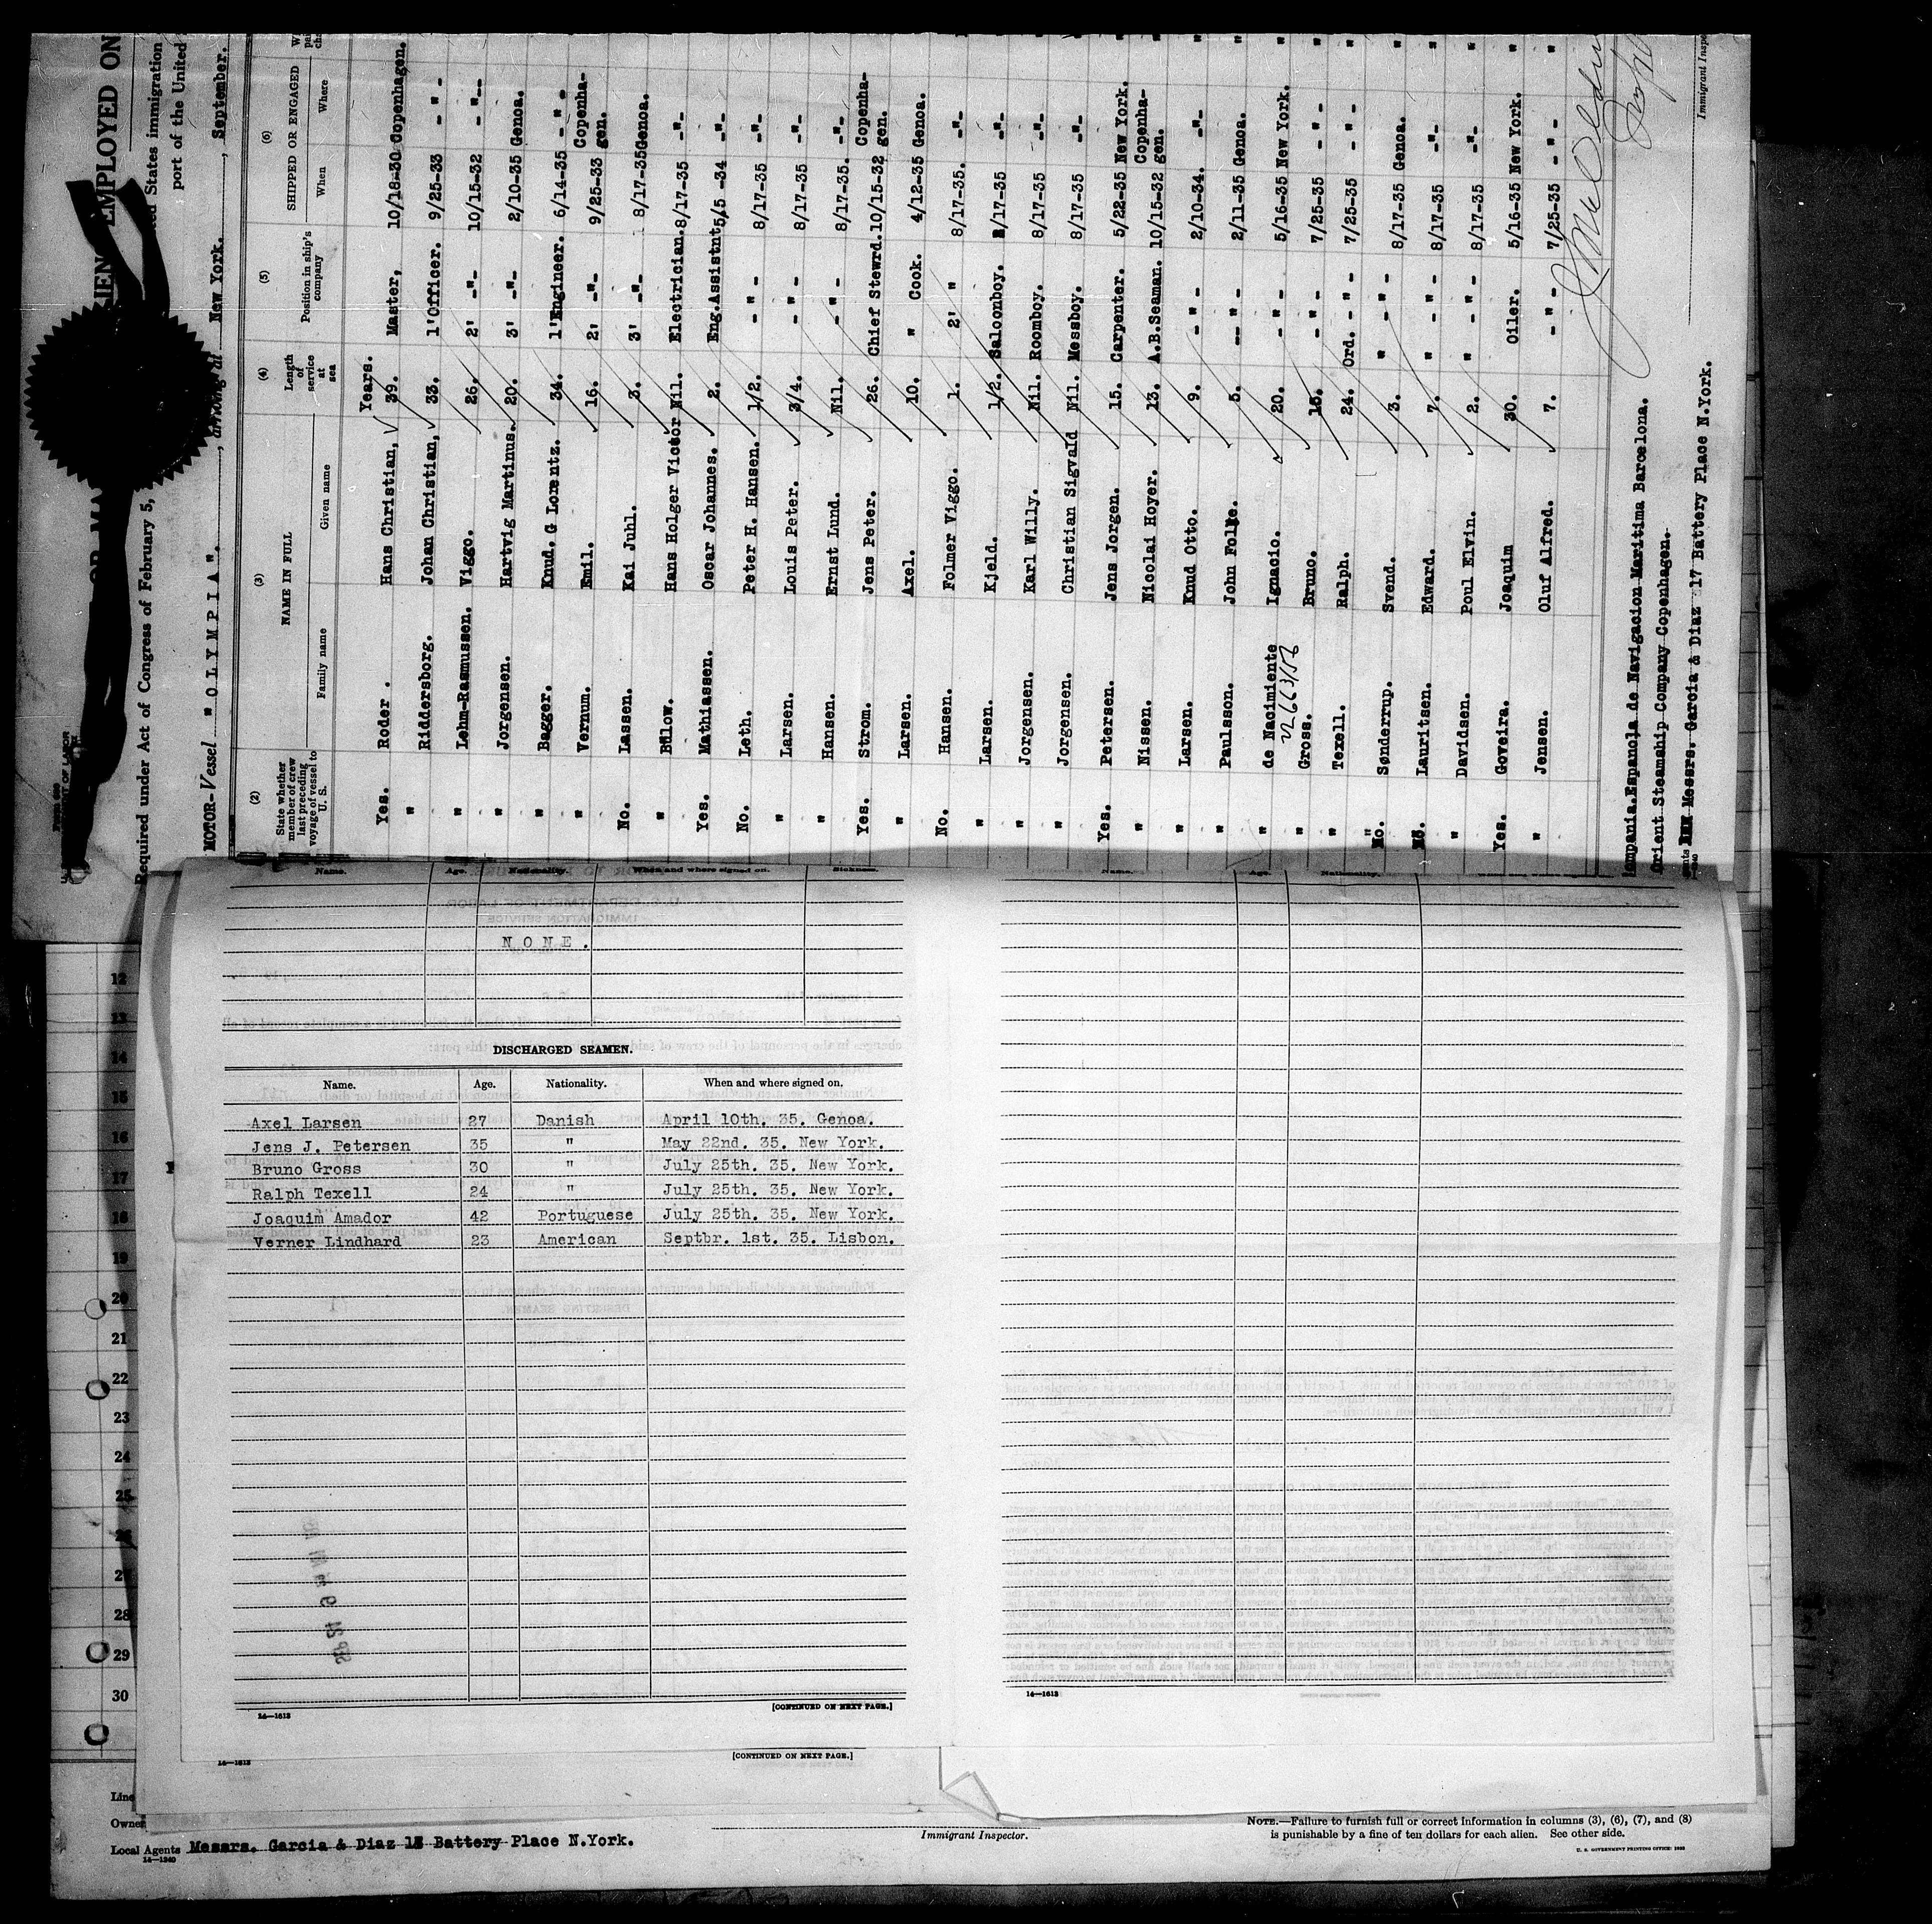 EMPLOYED ON
Required under Act of Congress of February 5,
ed States immigration
port of the United
MOTOR-Vessel "OLYMPIA".
, arriving at New York. , September.
(2) (3) (4) (5) (6)
State whether member of crew last preceding voyage of vessel to U. S. NAME IN FULL Length of service at sea Position in ship's company SHIPPED OR ENGAGED
Family name Given name When Where
Years.
Yes. Roder . Hans Christian, 39. Master, 10/18-30 Copenhagen.
" Riddersborg. Johan Christian, 33. 1'Officer. 9/25-33 - " -
" Lehm-Rasmussen. Viggo. 26. 2' -"- 10/15-32 - "--
" Jorgensen. Hartvig Martinus. 20. 3' -"- 2/10-35 Genoa.
" Bagger. Knud. G Lorentz. 34. 1'Engineer. 6/14-35 - " -
" Vernum. Emil. 16. 2' -"- 9/25-33 Copenha-gen.
No. Lassen. Kai Juhl. 3. 3' -"- 8/17-35 Genoa.
" Bülow. Hans Holger Victor Nil. Electrician. 8/17-35 -"-
Yes. Mathiassen. Oscar Johannes. 2. Eng.Assistnt, 5/5 -34 -"-
No. Leth. Peter H. Hansen. 1/2. - " - 8/17-35 -"-
" Larsen. Louis Peter. 3/4. - " - 8/17-35 -"-
" Hansen. Ernst Lund. Nil. - " - 8/17-35. -"-
Yes. Strom. Jens Peter. 26. Chief Stewrd. 10/15-32 Copenha-gen.
" Larsen. Axel. 10. " Cook. 4/12-35 Genoa.
No. Hansen. Folmer Viggo. 1. 2' " 8/17-35. -"-
" Larsen. Kjeld. 1/2. Saloonboy. 8/17-35 -"-
" Jorgensen. Karl Willy. Nil. Roomboy. 8/17-35 -"-
" Jorgensen. Christian Sigvald Nil. Messboy. 8/17-35 -"-
Yes. Petersen. Jens Jorgen. 15. Carpenter. 5/22-35 New York.
" Nissen. Nicolai Hoyer. 13. A.B.Seaman. 10/15-32 Copenha-gen.
" Larsen. Knud Otto. 9. - " - 2/10-34. -"-
" Paulsson. John Folke. 5. -- " - 2/11-35 Genoa.
" de Nacimiente Ignacio. 20. - " - 5/16-35 New York.
" Gross. Bruno. 15. - " - 7/25-35 - " -
" Texell. Ralph. 24. Ord. - " - 7/25-35 - " -
No. Sønderrup. Svend. 3. " - " - 8/17-35 Genoa.
No. Lauritsen. Edward. 7. " - " - 8/17-35 -"-
" Davidsen. Poul Elvin. 2. " - " - 8/17-35 -"-
Yes. Goveira. Joaquim 30. Oiler. 5/16-35 New York.
" Jensen. Oluf Alfred. 7. - " - 7/25-35 - " -
ompania.Espanola de Navigacion Maritima Barcelona.
Orient Steamship Company Copenhagen.
Messrs. Garcia & Diaz 17 Battery Place N.York.
Immigrant Inspe
Name. Age. Nationality. When and where signed on. Sickness.
NONE.
DISCHARGED SEAMEN.
Name. Age. Nationality. When and where signed on.
Axel Larsen 27 Danish April 10th. 35. Genoa.
Jens J. Petersen 35 " May 22nd. 35. New York.
Bruno Gross 30 " July 25th. 35. New York.
Ralph Texell 24 " July 25th. 35. New York.
Joaquim Amador 42 Portuguese July 25th. 35. New York.
Verner Lindhard 23 American Septbr. 1st. 35. Lisbon.
14—1613 [CONTINUED ON NEXT PAGE.]
14—1613 [CONTINUED ON NEXT PAGE.]
Name. Age. Nationality.
14—1613
12
13
14
15
16
17
18
19
20
21
22
23
24
25
26
27
28
29
30
Line
Owner
Local Agents Messrs. Garcia & Diaz Battery Place N.York.
14—1240
Immigrant Inspector.
NOTE.—Failure to furnish full or correct information in columns (3), (6), (7), and (8)
is punishable by a fine of ten dollars for each alien. See other side.
U. S. GOVERNMENT PRINTING OFFICE: 1933